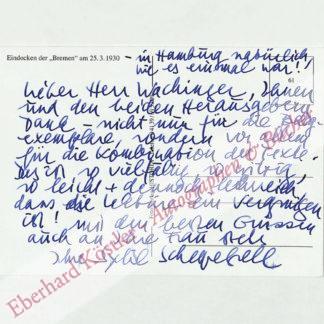 Eindocken der „Bremen" am 25.3.1930
– in Hamburg natürlich,
wie es einmal war!
61
Lieber Herr Wachinger, Ihnen
und den beiden Herausgebern
Dank – nicht nur für die
exemplare, sondern vor allem
für die Kombination der Texte.
ist so vielfältig
so leicht + dennoch lehrreich,
dass die Lektüre ein Vergnügen
ist! mit den besten Grüssen
auch an Ihre Frau stets
Ihre Sybil
Eberhard Köstler Autographen & Bücher